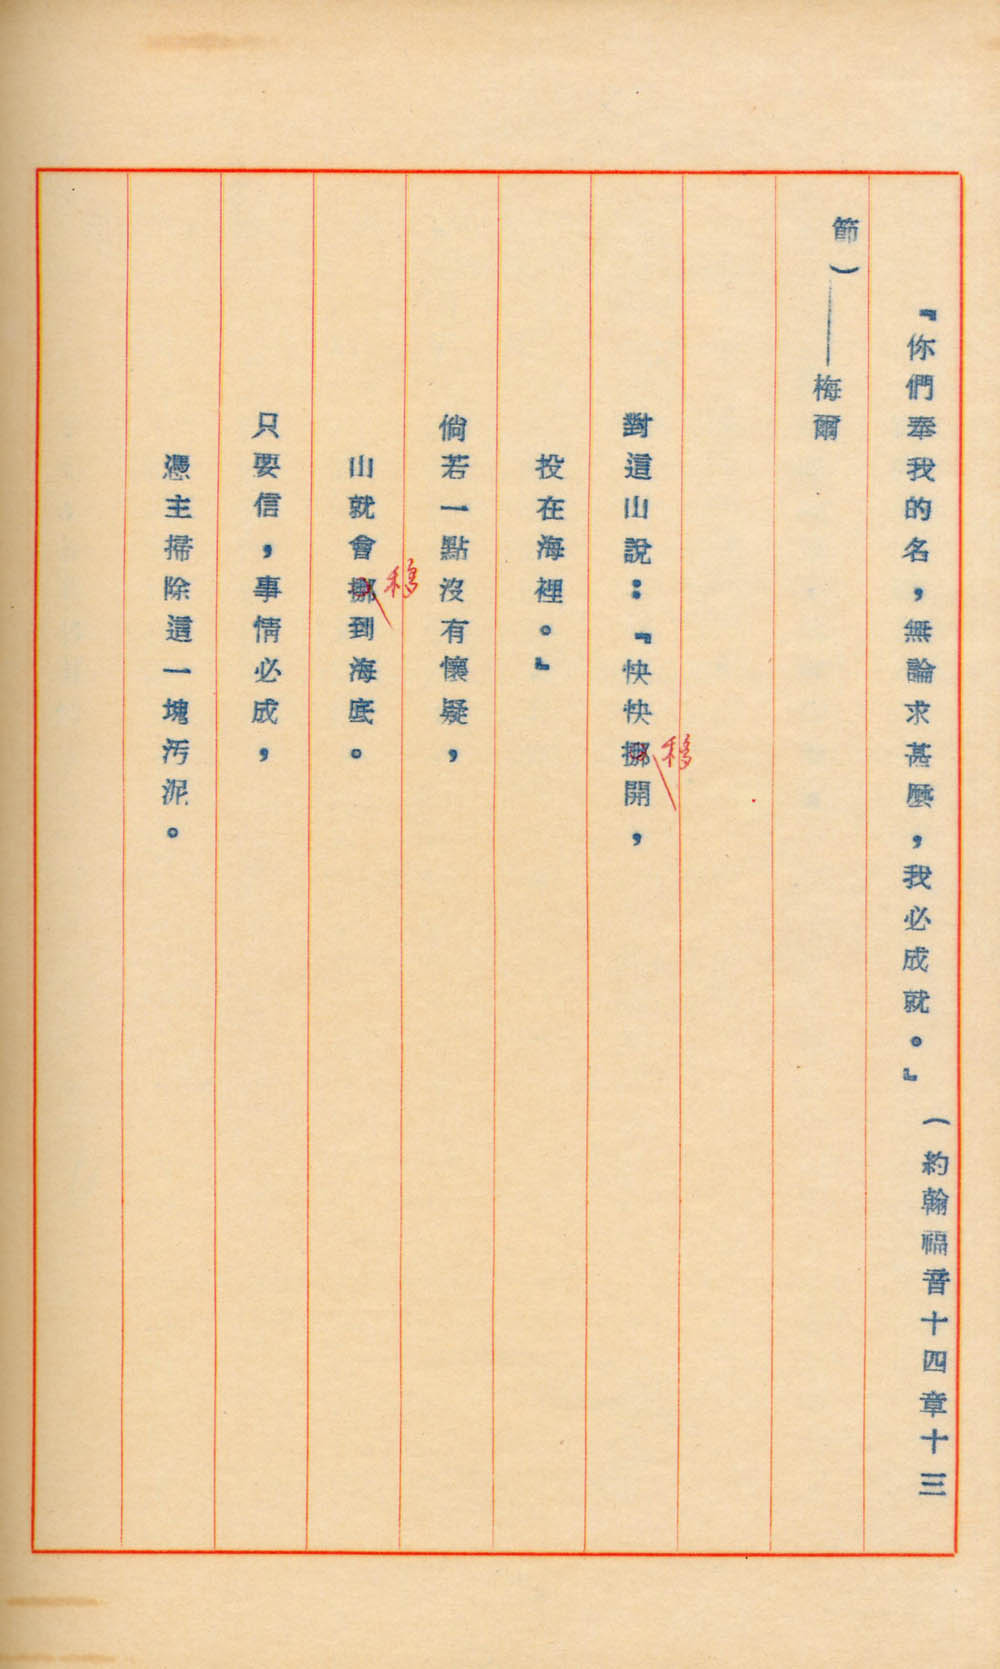 『你們奉我的名，無論求甚麼，我必成就。』（約翰福音十四章十三
節）——梅爾
對這山說：『快快挪開，
移
投在海裡。』
倘若一點沒有懷疑，
山就會挪到海底。
移
只要信，事情必成，
憑主掃除這一塊污泥。